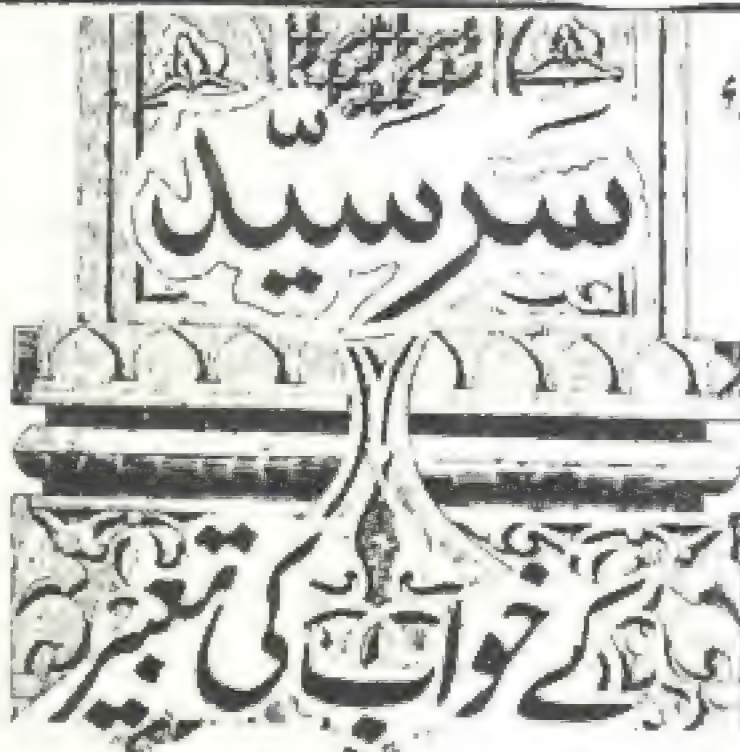 سَر سیّد
کے خواب کی تعبیر